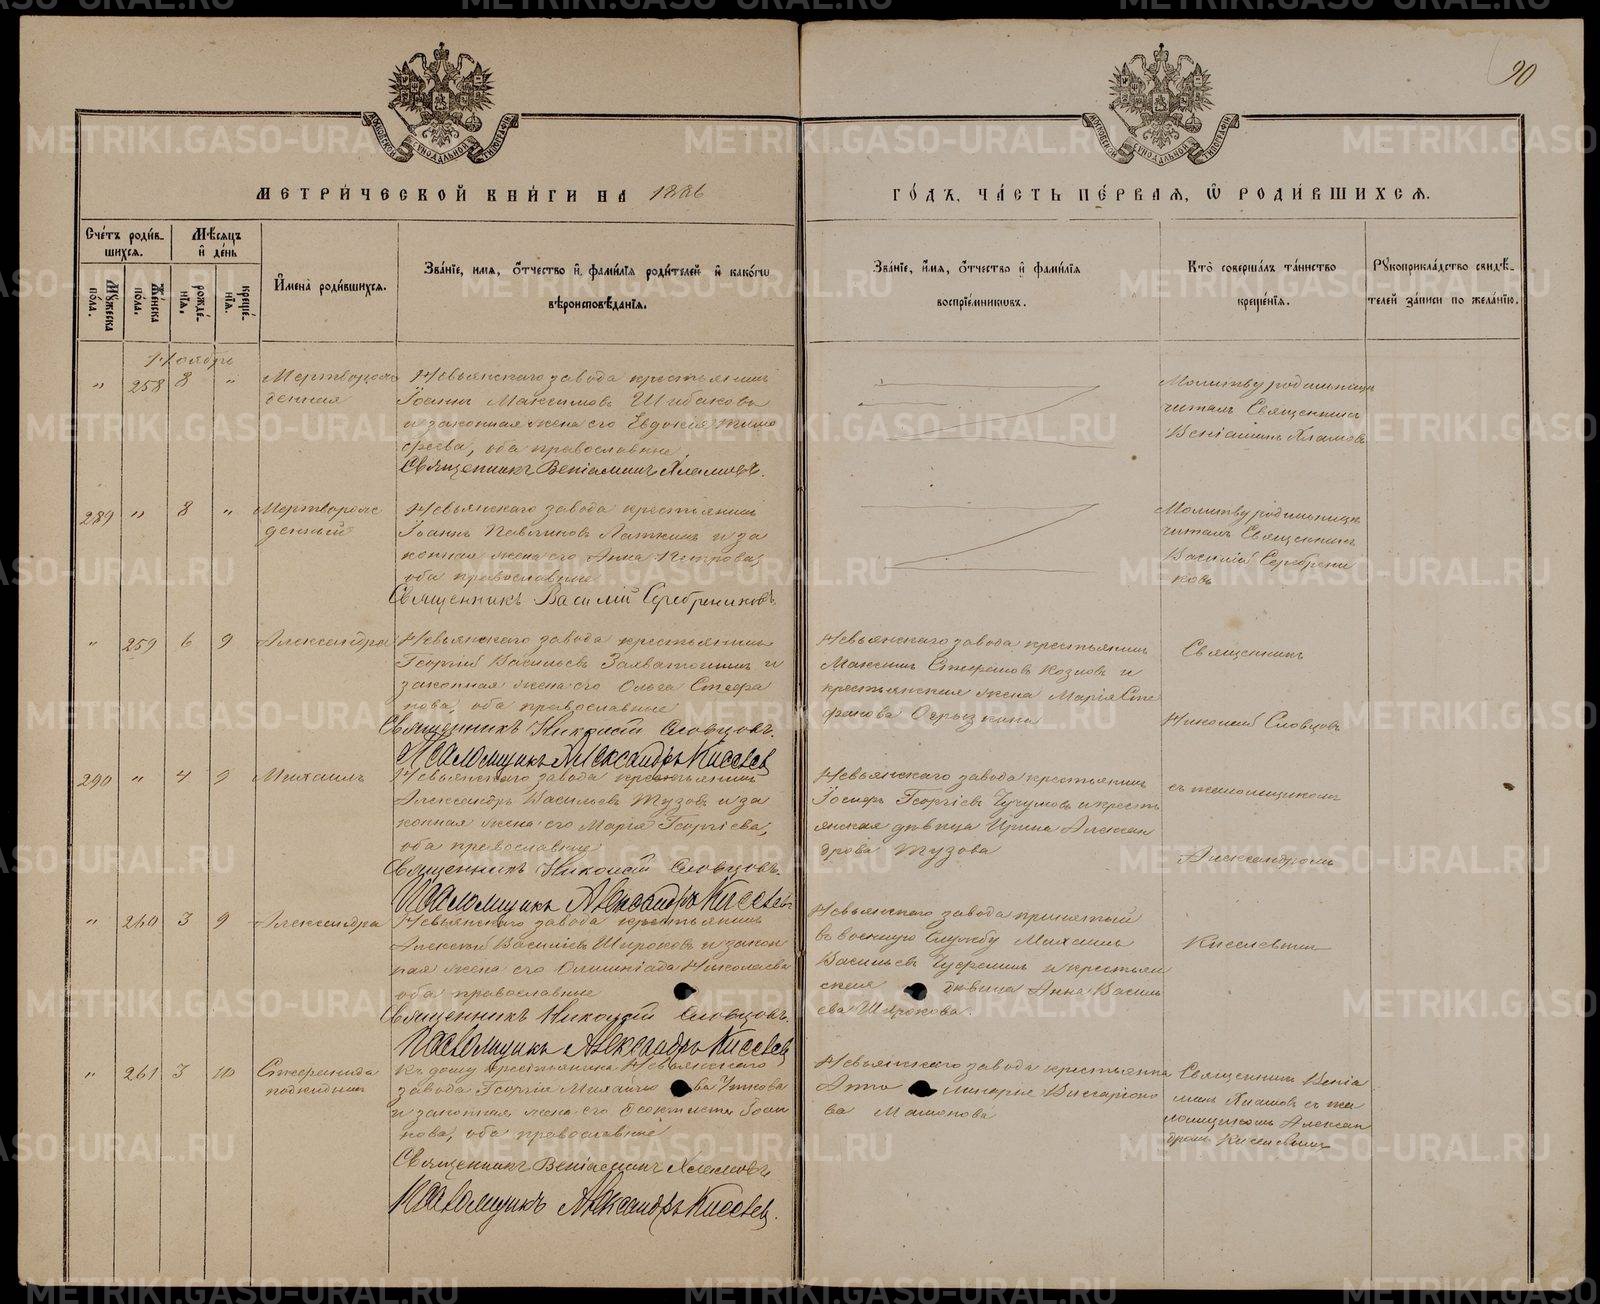 90
МОСКОВСКОЙ СѴНОДАЛЬНОЙ ТИПОГРАФІИ
МОСКОВСКОЙ СѴНОДАЛЬНОЙ ТИПОГРАФІИ
МЕТРИ́ЧЕСКОЙ КНИ́ГИ НА 1886
ГО́ДЪ, ЧА́СТЬ ПЕ́РВАЯ, Ѽ РОДИ́ВШИХСЯ.
Сче́тъ роди́в-
шихся.
Мѣ́сяцъ
и҆ де́нь
Мꙋ́жеска
по́ла.
Же́нска
по́ла.
рожде́-
нїѧ.
креще́-
нїѧ.
И҆мена̀ роди́вшихся.
Зва́нїе, и́мѧ, о́тчество и҆ фами́лїѧ роди́телей и҆ како́гѡ
вѣроисповѣ́данїѧ.
Зва́нїе, и́мѧ, о́тчество и҆ фами́лїѧ
воспрїе́мниковъ.
Кто̀ соверша́лъ та́инство
креще́нїѧ.
Рꙋкоприкла́дство свидѣ́-
телей за́писи по жела́нїю.
Ноябрь
" 258 8 "
Мертворож
денная
Невьянскаго завода крестьянинъ
Іоаннъ Максимовъ Шибаковъ
и законная жена его Евдокія Тимо
феева, оба православные
Священникъ Веніаминъ Хламовъ.
Молитву родильницѣ
читалъ Священникъ
Веніаминъ Хламовъ
289 " 8 "
Мертворож
денный
Невьянскаго завода крестьянинъ
Іоаннъ Павлиновъ Лаптинъ и за
конная жена его Анна Петрова,
оба православные
Священникъ Василій Серебрениковъ.
Молитву родильницѣ
читалъ Священникъ
Василій Серебрени
ковъ
" 259 6 9
Александра
Невьянскаго завода крестьянинъ
Георгій Васильевъ Захватошинъ и
законная жена его Ольга Стефа
нова, оба православные
Священникъ Николай Словцовъ.
Псаломщикъ Александръ Киселев
Невьянскаго завода крестьянинъ
Максимъ Стефановъ Козловъ и
крестьянская жена Марія Сте
фанова Огрызкина
Священникъ
Николай Словцовъ
290 " 4 9
Михаилъ
Невьянскаго завода крестьянинъ
Александръ Васильевъ Тузовъ и за
конная жена его Марія Георгіева,
оба православные
Священникъ Николай Словцовъ.
Псаломщикъ Александръ Киселев
Невьянскаго завода крестьянинъ
Іосифъ Георгіевъ Чугуновъ и кресть
янская дѣвица Ирина Алексан
дрова Тузова
съ псаломщикомъ
Александромъ
" 260 3 9
Александра
Невьянскаго завода крестьянинъ
Алексѣй Васильевъ Широковъ и закон
ная жена его Олимпіада Николаева
оба православные
Священникъ Николай Словцовъ.
Псаломщикъ Александръ Киселев
Невьянскаго завода принятый
въ военную Службу Михаилъ
Васильевъ и крестьян
ская дѣвица Анна Василь
ева Широкова.
Киселевымъ
" 261 3 10
Стефанида
подкидышъ
Къ дому крестьянина Невьянскаго
завода Георгія Михайлова Уткова
и законная жена его Ѳеоктиста Іоан
нова, оба православные
Священникъ Веніаминъ Хламовъ
Псаломщикъ Александръ Киселев.
Невьянскаго завода крестьянка
Апполинарія Виссаріоно
ва Мамонова
Священникъ Веніа
минъ Хламовъ съ пса
ломщикомъ Алексан
дромъ Киселевымъ
METRIKI.GASO-URAL.RU